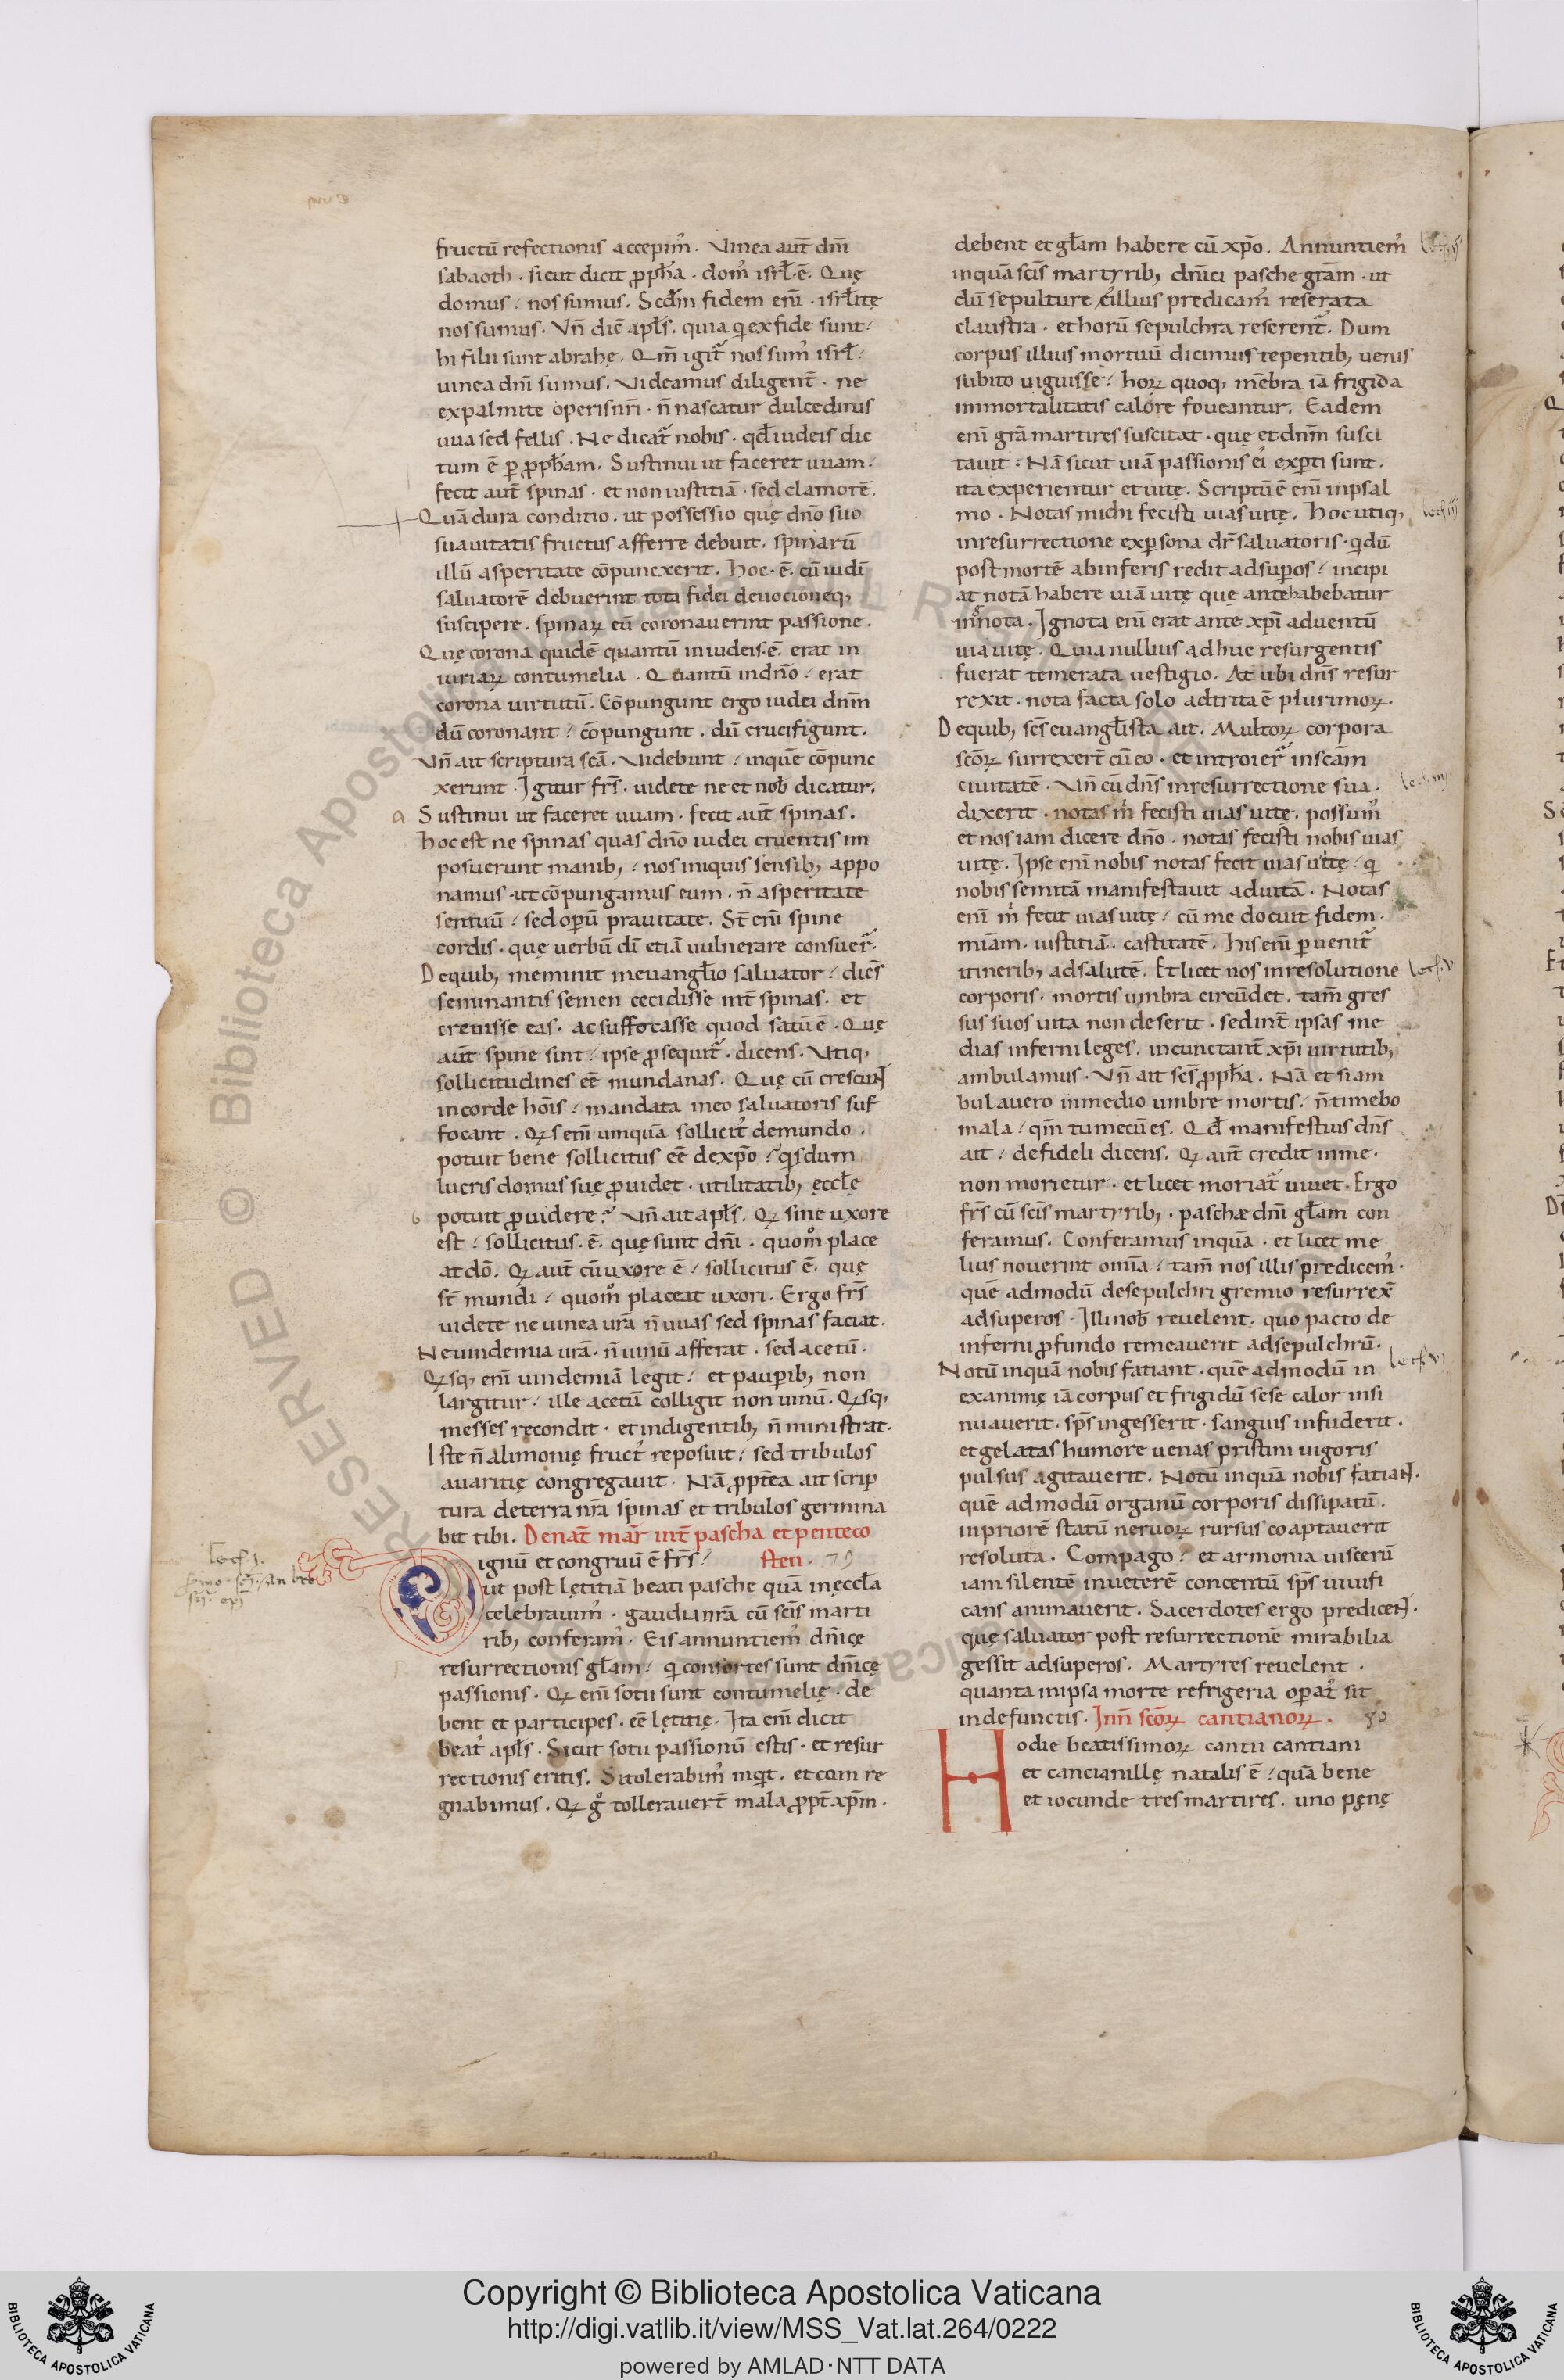 fructū refectionis accepim᷒. Vinea aut̄ dn̄i
sabaoth. sicut dicit ꝓph̄a. dom᷒ isrł. ē. Quę
domus? nos sumus. Scd̄m fidem eni̅. isrłitę
nos sumus. Vn̄ dic̄ apłs. quia qi ex fide sunt?
hi filii sunt abrahę. Qm̄ igit᷑ nos sum᷒ isrł?
uinea dn̄i sumus. Videamus diligent̄. ne
ex palmite operis nr̄i. n̄ nascatur dulcedinis
uua sed fellis. Ne dicat᷑ nobis. qd̄ iudeis dic
tum ē ꝑ ꝓph̄am. Sustinui ut faceret uuam.
fecit aut̄ spinas. et non iustitiā. sed clamorē.
Quā dura conditio. ut possessio quę dn̄o suo
suauitatis fructus afferre debuit. spinarū
illū asperitate cōpuncxerit. Hoc. ē. cū iudi̅
saluatorē debuerint tota fidei deuocioneq;
suscipere. spinaꝝ eū coronauerint passione.
Quę corona quidē quantū in iudeis. ē. erat in
iuriaꝝ contumelia. Quantū in dn̄o? erat
corona uirtutū. Cōpungunt ergo iudei dn̄m
dū coronant? cōpungunt. dū crucifigunt.
Vn̄ ait scriptura scā. Videbunt? in quē cōpunc
xerunt. Igitur frs̄. uidete ne et nob̄ dicatur.
a Sustinui ut faceret uuam. fecit aut̄ spinas.
hoc est ne spinas quas dn̄o iudei cruentis im
posuerunt manib;? nos iniquis sensib; appo
namus. ut cōpungamus eum. n̄ asperitate
sentuū? sed opeꝝ prauitate. St̄ eni̅ spine
cordis. quę uerbū di̅ etiā uulnerare consuer᷑.
De quib; meminit in euangłio saluator? dicēs
seminantis semen cecidisse int̄ spinas. et
creuisse eas. ac suffocasse quod satū ē. Quę
aut̄ spine sint? ipse ꝓsequit᷑. dicens. Vtiq;
sollicitudines eē mundanas. Quę cū crescunt
in corde hōis? mandata in eo saluatoris suf
focant. Qis eni̅ umquā sollicit᷒ de mundo.
potuit bene sollicitus eē de xp̄o? qis dum
lucris domus suę ꝓuidet. utilitatib; ęccłę
b potuit ꝓuidere? Vn̄ ait apłs. Qi sine uxore
est? sollicitus. ē. quę sunt dn̄i. quom̊ place
at dō. Qi aut̄ cū uxore ē? sollicitus ē. que
st̄ mundi? quom̊ placeat uxori. Ergo frs̄
uidete ne uinea ur̄a n̄ uuas sed spinas faciat.
Ne uindemia ur̄a. n̄ uinū afferat. sed acetū.
Qisq; eni̅ uindemiā legit? et pauꝑib; non
largitur? ille acetū colligit non uinū. Qisq;
messes recondit. et indigentib; n̄ ministrat.
Iste n̄ alimonię fruct᷒ reposuit? sed tribulos
auaritię congregauit. Nā ꝓpt̄ea ait scrip
tura de terra nr̄a spinas et tribulos germina
bit tibi. De nat̄ mar̄ int̄ pascha et penteco
sten. 79
Lect. j.
ignū et congruū ē frs̄?
ut post lętitiā beati pasche quā in ęccła
celebrauim᷒. gaudia nr̄a cū sc̄is marti
rib; conferam᷒. Eis annuntiem᷒ dn̄icę
resurrectionis głam? qi consortes sunt dn̄icę
passionis. Qi eni̅ sotii sunt contumelię. de
bent et participes. eē lętitię. Ita eni̅ dicit
beat᷒ apłs. Sicut sotii passionū estis. et resur
rectionis eritis. Si tolerabim᷒ inqit. et com re
gnabimus. Qi g̊ tollerauert̄ mala ꝓpt̄ xp̄m.
debent et głam habere cū xp̄o. Annuntiem᷒
inquā sc̄is martyrib; dn̄ici pasche grām. ut
dū sepulture illius predicam᷒ reserata
claustra. et horū sepulchra reserent᷑. Dum
corpus illius mortuū dicimus tepentib; uenis
subito uiguisse? hoꝝ quoq; mēbra iā frigida
immortalitatis calore foueantur. Eadem
eni̅ grā martires suscitat. quę et dn̄m susci
tauit. Nā sicut uiā passionis ei᷒ exꝑti sunt.
ita experientur et uitę. Scriptū ē eni̅ in psal
mo. Notas michi fecisti uias uitę. Hoc utiq; lect. iij
in resurrectione ex ꝑsona dr̄ saluatoris. qi dū
post mortē ab inferis redit ad suꝑos? incipi
at notā habere uiā uitę que ante habebatur
ignota. Ignota eni̅ erat ante xp̄i aduentū
uia uitę. Quia nullius adhuc resurgentis
fuerat temerata uestigio. At ubi dn̄s resur
rexit. nota facta solo adtrita ē plurimoꝝ.
De quib; sc̄s euangłista ait. Multoꝝ corpora
sc̄oꝝ surrexert̄ cū eo. et introier᷑ in scām
ciuitatē. Vn̄ cū dn̄s in resurrectione sua.
dixerit. notas m̍ fecisti uias uite. possum᷒
et nos iam dicere dn̄o. notas fecisti nobis uias
uitę. Ipse eni̅ nobis notas fecit uias uitę? qi
nobis semitā manifestauit ad uitā. Notas
eni̅ m̍ fecit uias uitę? cū me docuit fidem.
miam̄. iustitiā. castitatē. His eni̅ ꝑuenit᷑
itinerib; ad salutē. Et licet nos in resolutione lect. v
corporis. mortis umbra circūdet. tam̄ gres
sus suos uita non deserit. sed int̄ ipsas me
dias inferni leges. incunctant̄ xp̄i uirtutib;
ambulamus. Vn̄ ait sc̄s ꝓph̄a. Nā et si am
bulauero in medio umbre mortis. n̄ timebo
mala? qm̄ tu mecū es. Qd̄ manifestius dn̄s
ait? de fideli dicens. Qi aut̄ credit in me.
non morietur. et licet moriat᷑ uiuet. Ergo
frs̄ cū sc̄is martyrib;. paschæ dn̄i głam con
feramus. Conferamus inquā. et licet me
lius nouerint omi̅a? tam̄ nos illis predicem᷒.
quē admodū de sepulchri gremio resurrex̄
ad superos. Illi nob̄ reuelent. quo pacto de
inferni ꝓfundo remeauerit ad sepulchrū.
Notū inquā nobis fatiant. quē admodū in lect. vi
exanimę iā corpus et frigidū sese calor insi
nuauerit. sps̄ ingesserit. sanguis infuderit.
et gelatas humore uenas pristini uigoris
pulsus agitauerit. Notū inquā nobis fatiant.
quē admodū organū corporis dissipatū.
in priorē statū neruoꝝ rursus coaptauerit
resoluta. Compago? et armonia uiscerū
iam silentē in ueterē concentū sps̄ uiuifi
cans animauerit. Sacerdotes ergo predicent.
quę saluator post resurrectionē mirabilia
gessit ad superos. Martyres reuelent.
quanta in ipsa morte refrigeria oꝑat᷒ sit
in defunctis. Inn̄ sc̄oꝝ cantianoꝝ. 80
Hodie beatissimoꝝ cantii cantiani
et cancianillę natalis ē? quā bene
et iocunde tres martires. uno pęnę
Copyright © Biblioteca Apostolica Vaticana
http://digi.vatlib.it/view/MSS_Vat.lat.264/0222
powered by AMLAD·NTT DATA
BIBLIOTECA APOSTOLICA VATICANA
BIBLIOTECA APOSTOLICA VATICANA